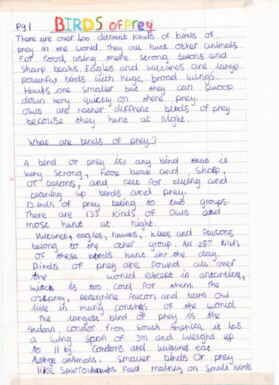 Pg 1 BIRDS of Prey
There are over 200 different kinds of birds of
prey in the world. They are hunt other animals
For food, using there strong talons and
sharp beaks. Eagles and vultures are large
powerful birds with huge, broad wings.
Hawks are smaller but they can swoop
down very quickly on there prey.
Owls are rather different birds of prey
because they hunt at night.
What are birds of prey?
A bird of prey is any bird that is
very strong, have beak and sharp,
of talons, and use for flying and
tearing up birds and prey.
Birds of prey belong to two groups.
There are 133 kinds of owls and
most hunt at night.
Vultures, eagles, hawks, kites and falcons
belong to the other group. All
of these birds hunt in the day.
Birds of prey are found all over
the world except in Antarctica,
which is too cold for them. The
osprey, peregrine falcon and barn owl
live in many countries of the world
The largest bird of prey is the
Andean condor from South America, it has
a wing span of 3m and weighs up
to 11 kg. Condors and vultures eat
large animals. Smaller birds of prey
like Sparrowhawks feed mainly on small birds